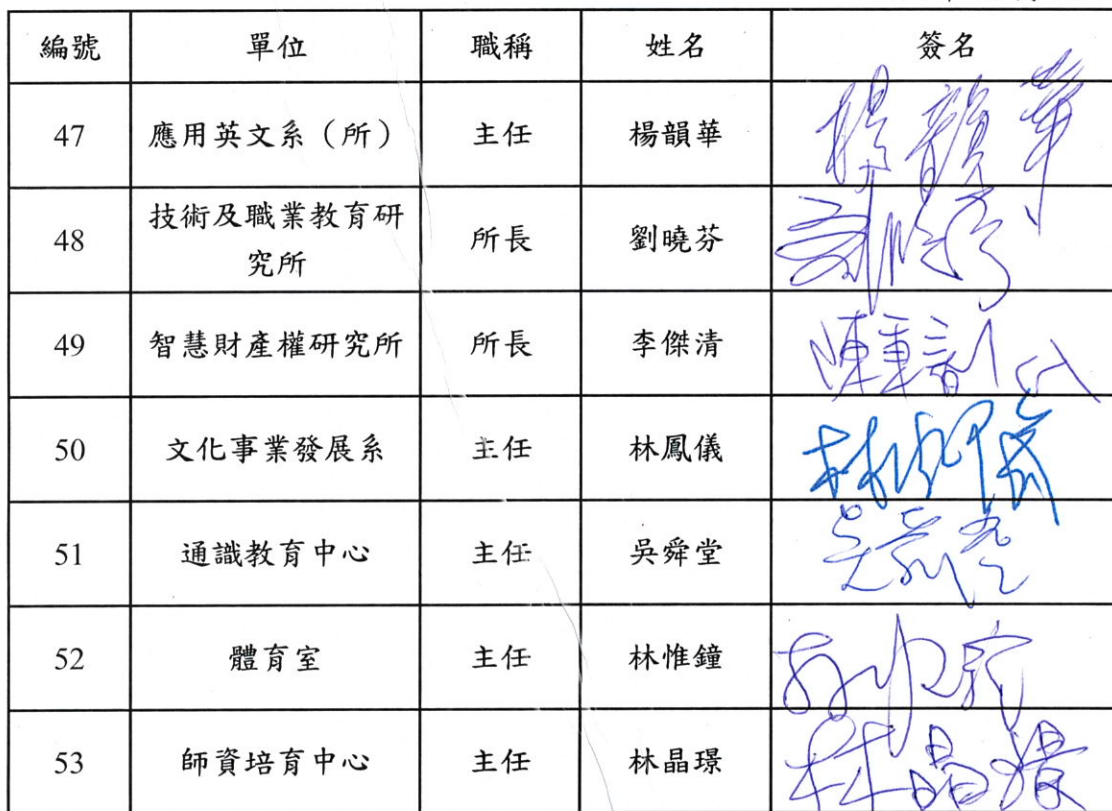 編號 單位 職稱 姓名 簽名
47 應用英文系（所） 主任 楊韻華 楊韻華
48 技術及職業教育研究所 所長 劉曉芬
49 智慧財產權研究所 所長 李傑清
50 文化事業發展系 主任 林鳳儀 林鳳儀
51 通識教育中心 主任 吳舜堂
52 體育室 主任 林惟鐘
53 師資培育中心 主任 林晶璟 林晶璟